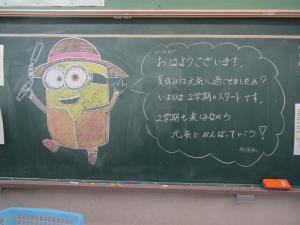 おはようございます。
夏休みは元気に過ごせましたか？
いよいよ2学期のスタートです。
2学期も楽しみながら
元気にがんばっていこう！